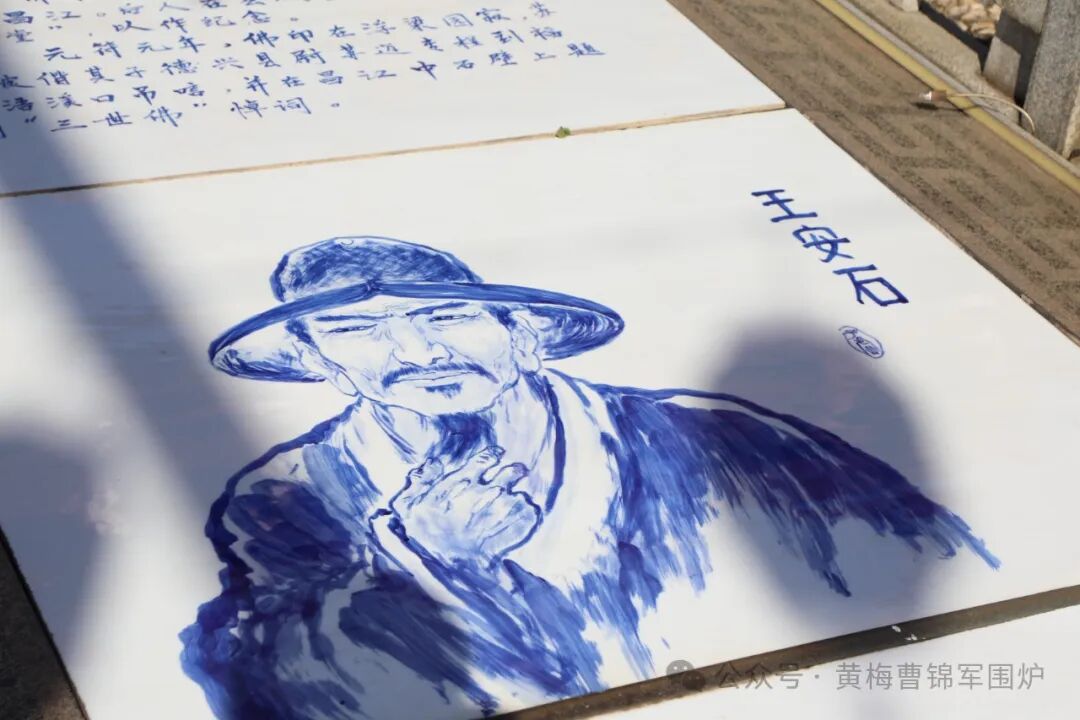 昌江。后人
堂"，以作纪念。
元符元年，佛印在浮梁圆寂，苏
坡偕其子德兴县尉苏迈专程到
溪口吊唁，并在昌江中石壁上题
"三世佛"悼词。
王安石
公众号·黄梅曹锦军围炉